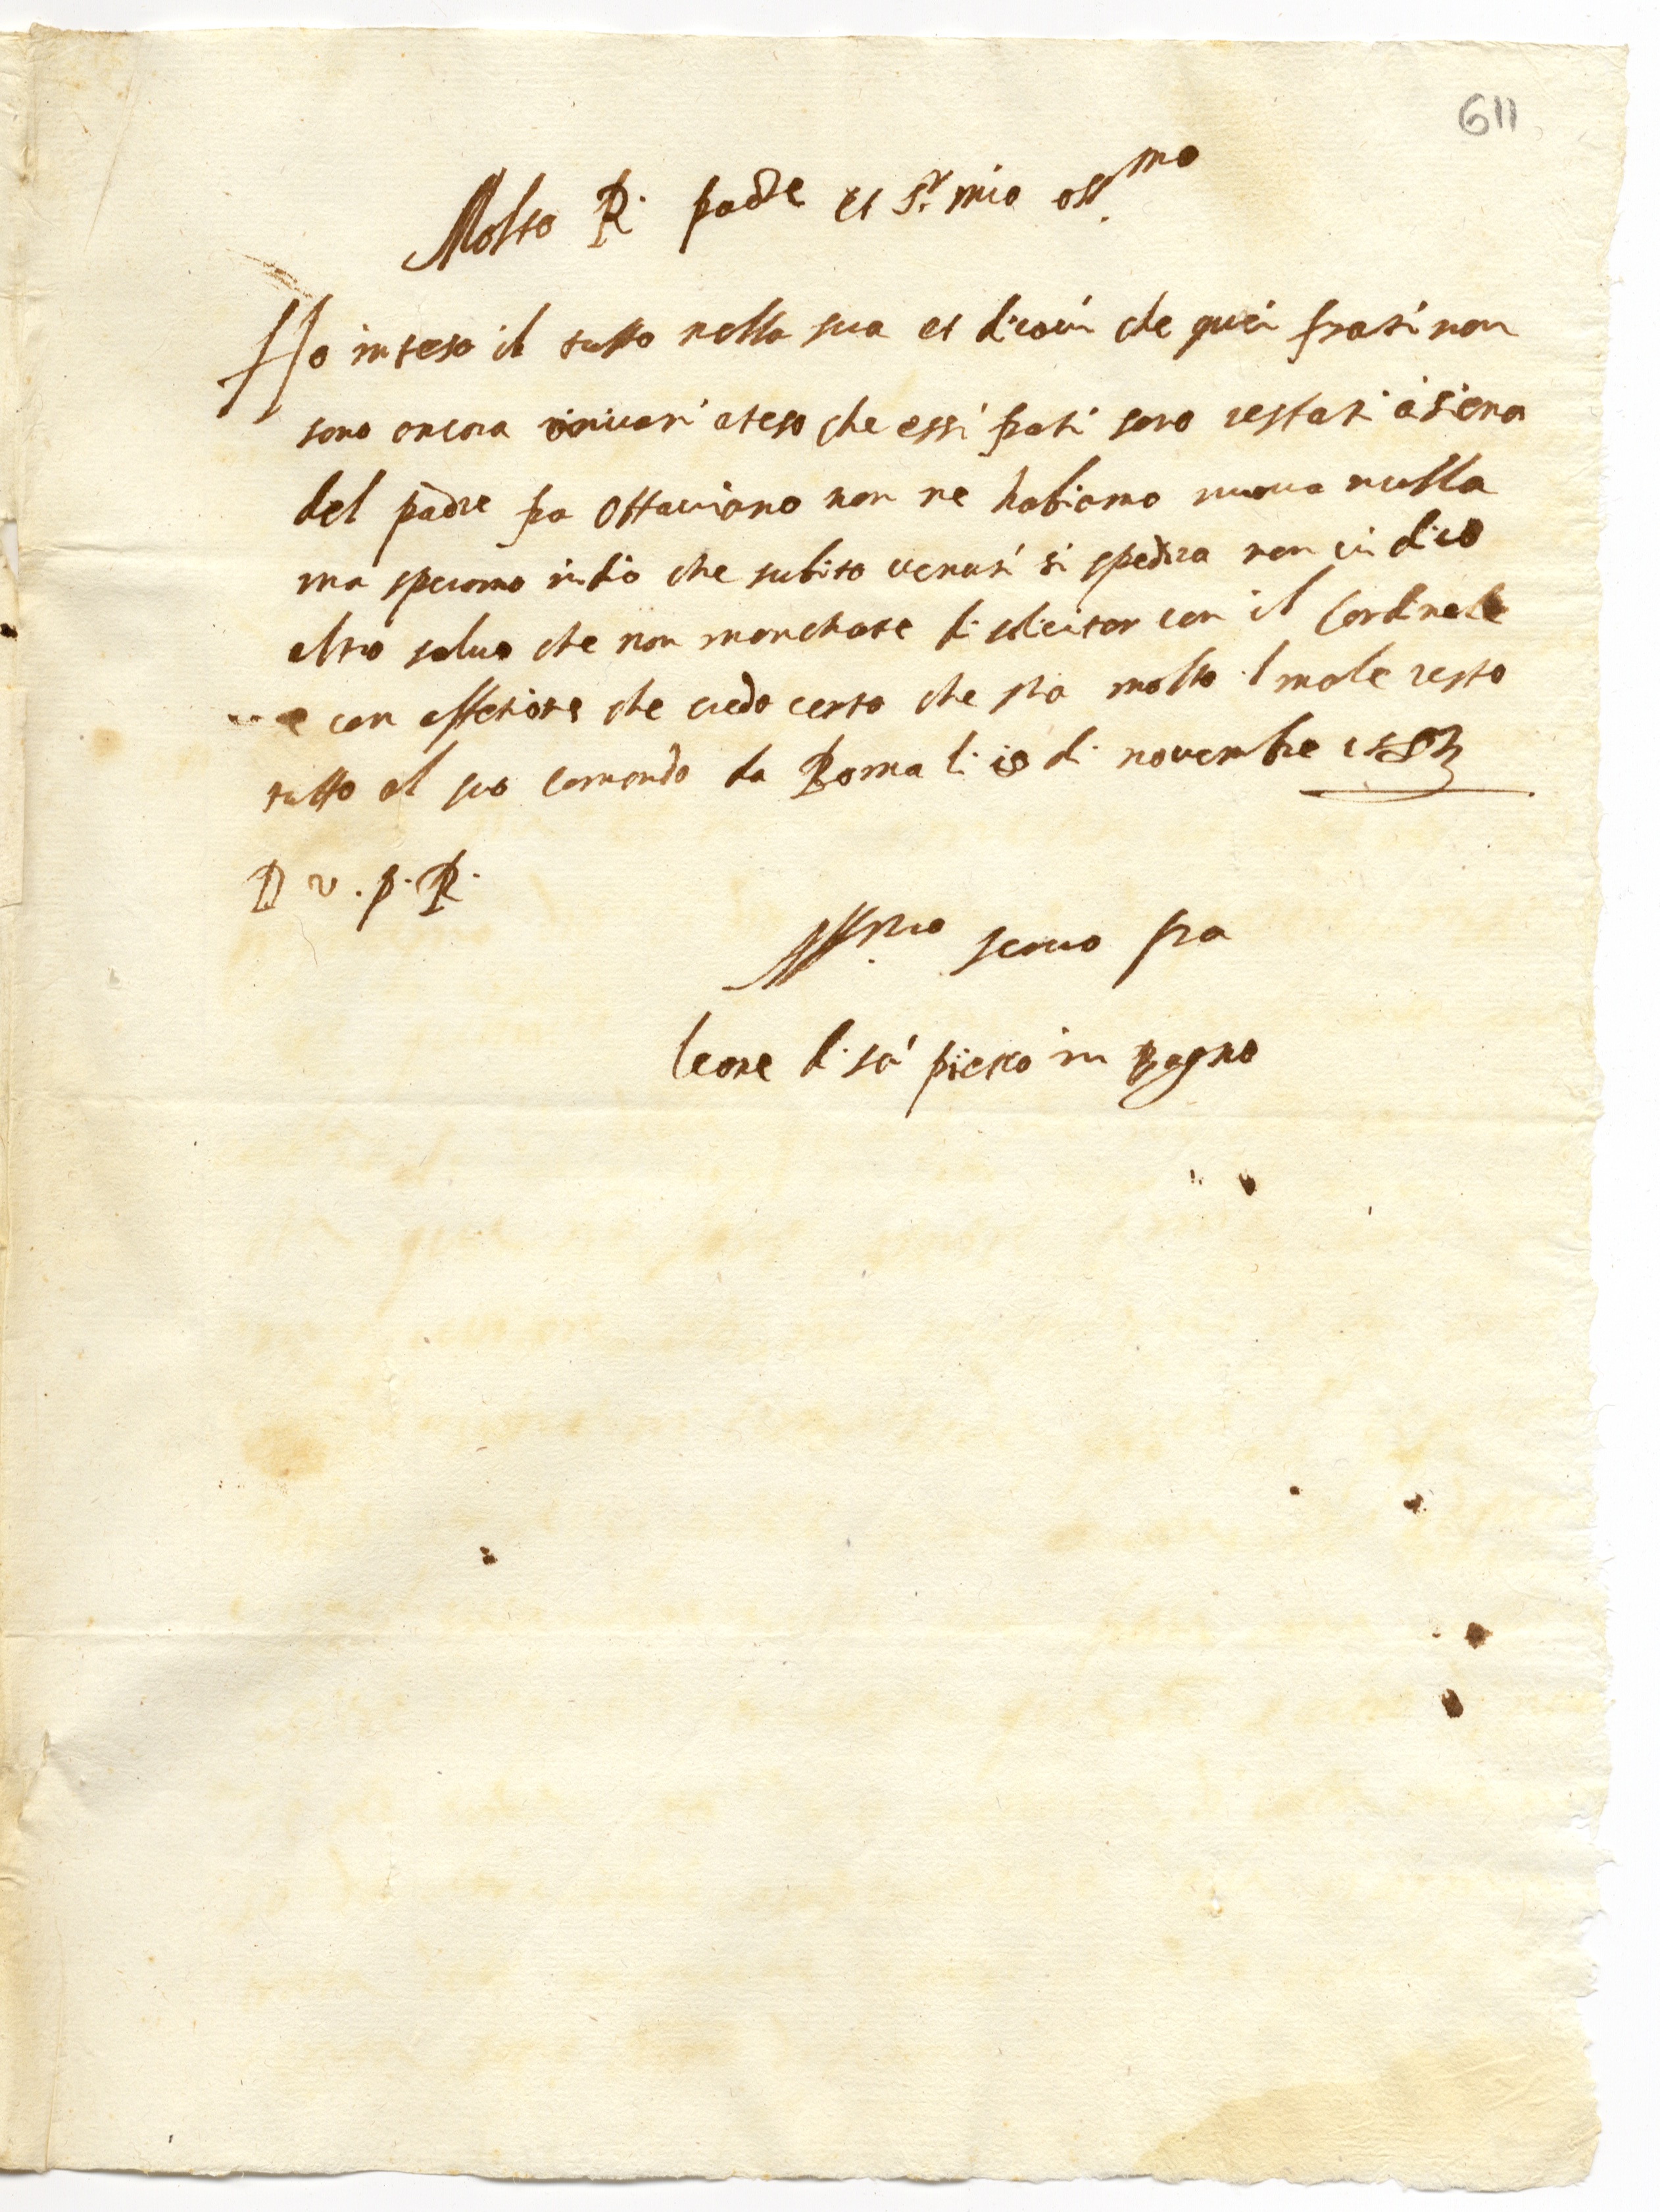 611
Molto R. padre et Sr. mio oss.mo
Ho inteso il tutto nella sua et dicovi che quei frati non
sono ancora arivati ateso che essi frati sono restati à siena
del padre fra Ottaviano non ne habiamo nuova nulla
ma speramo in dio che subito venuti si spedira non vi dico
altro salvo che non manchate di solicitar con il Cardinale
e con che credo certo che sta molto male resto
tutto al suo comando da Roma li 10 di novembre
D v. p. R.
Aff.mo servo fra
leone di sa' pietro in